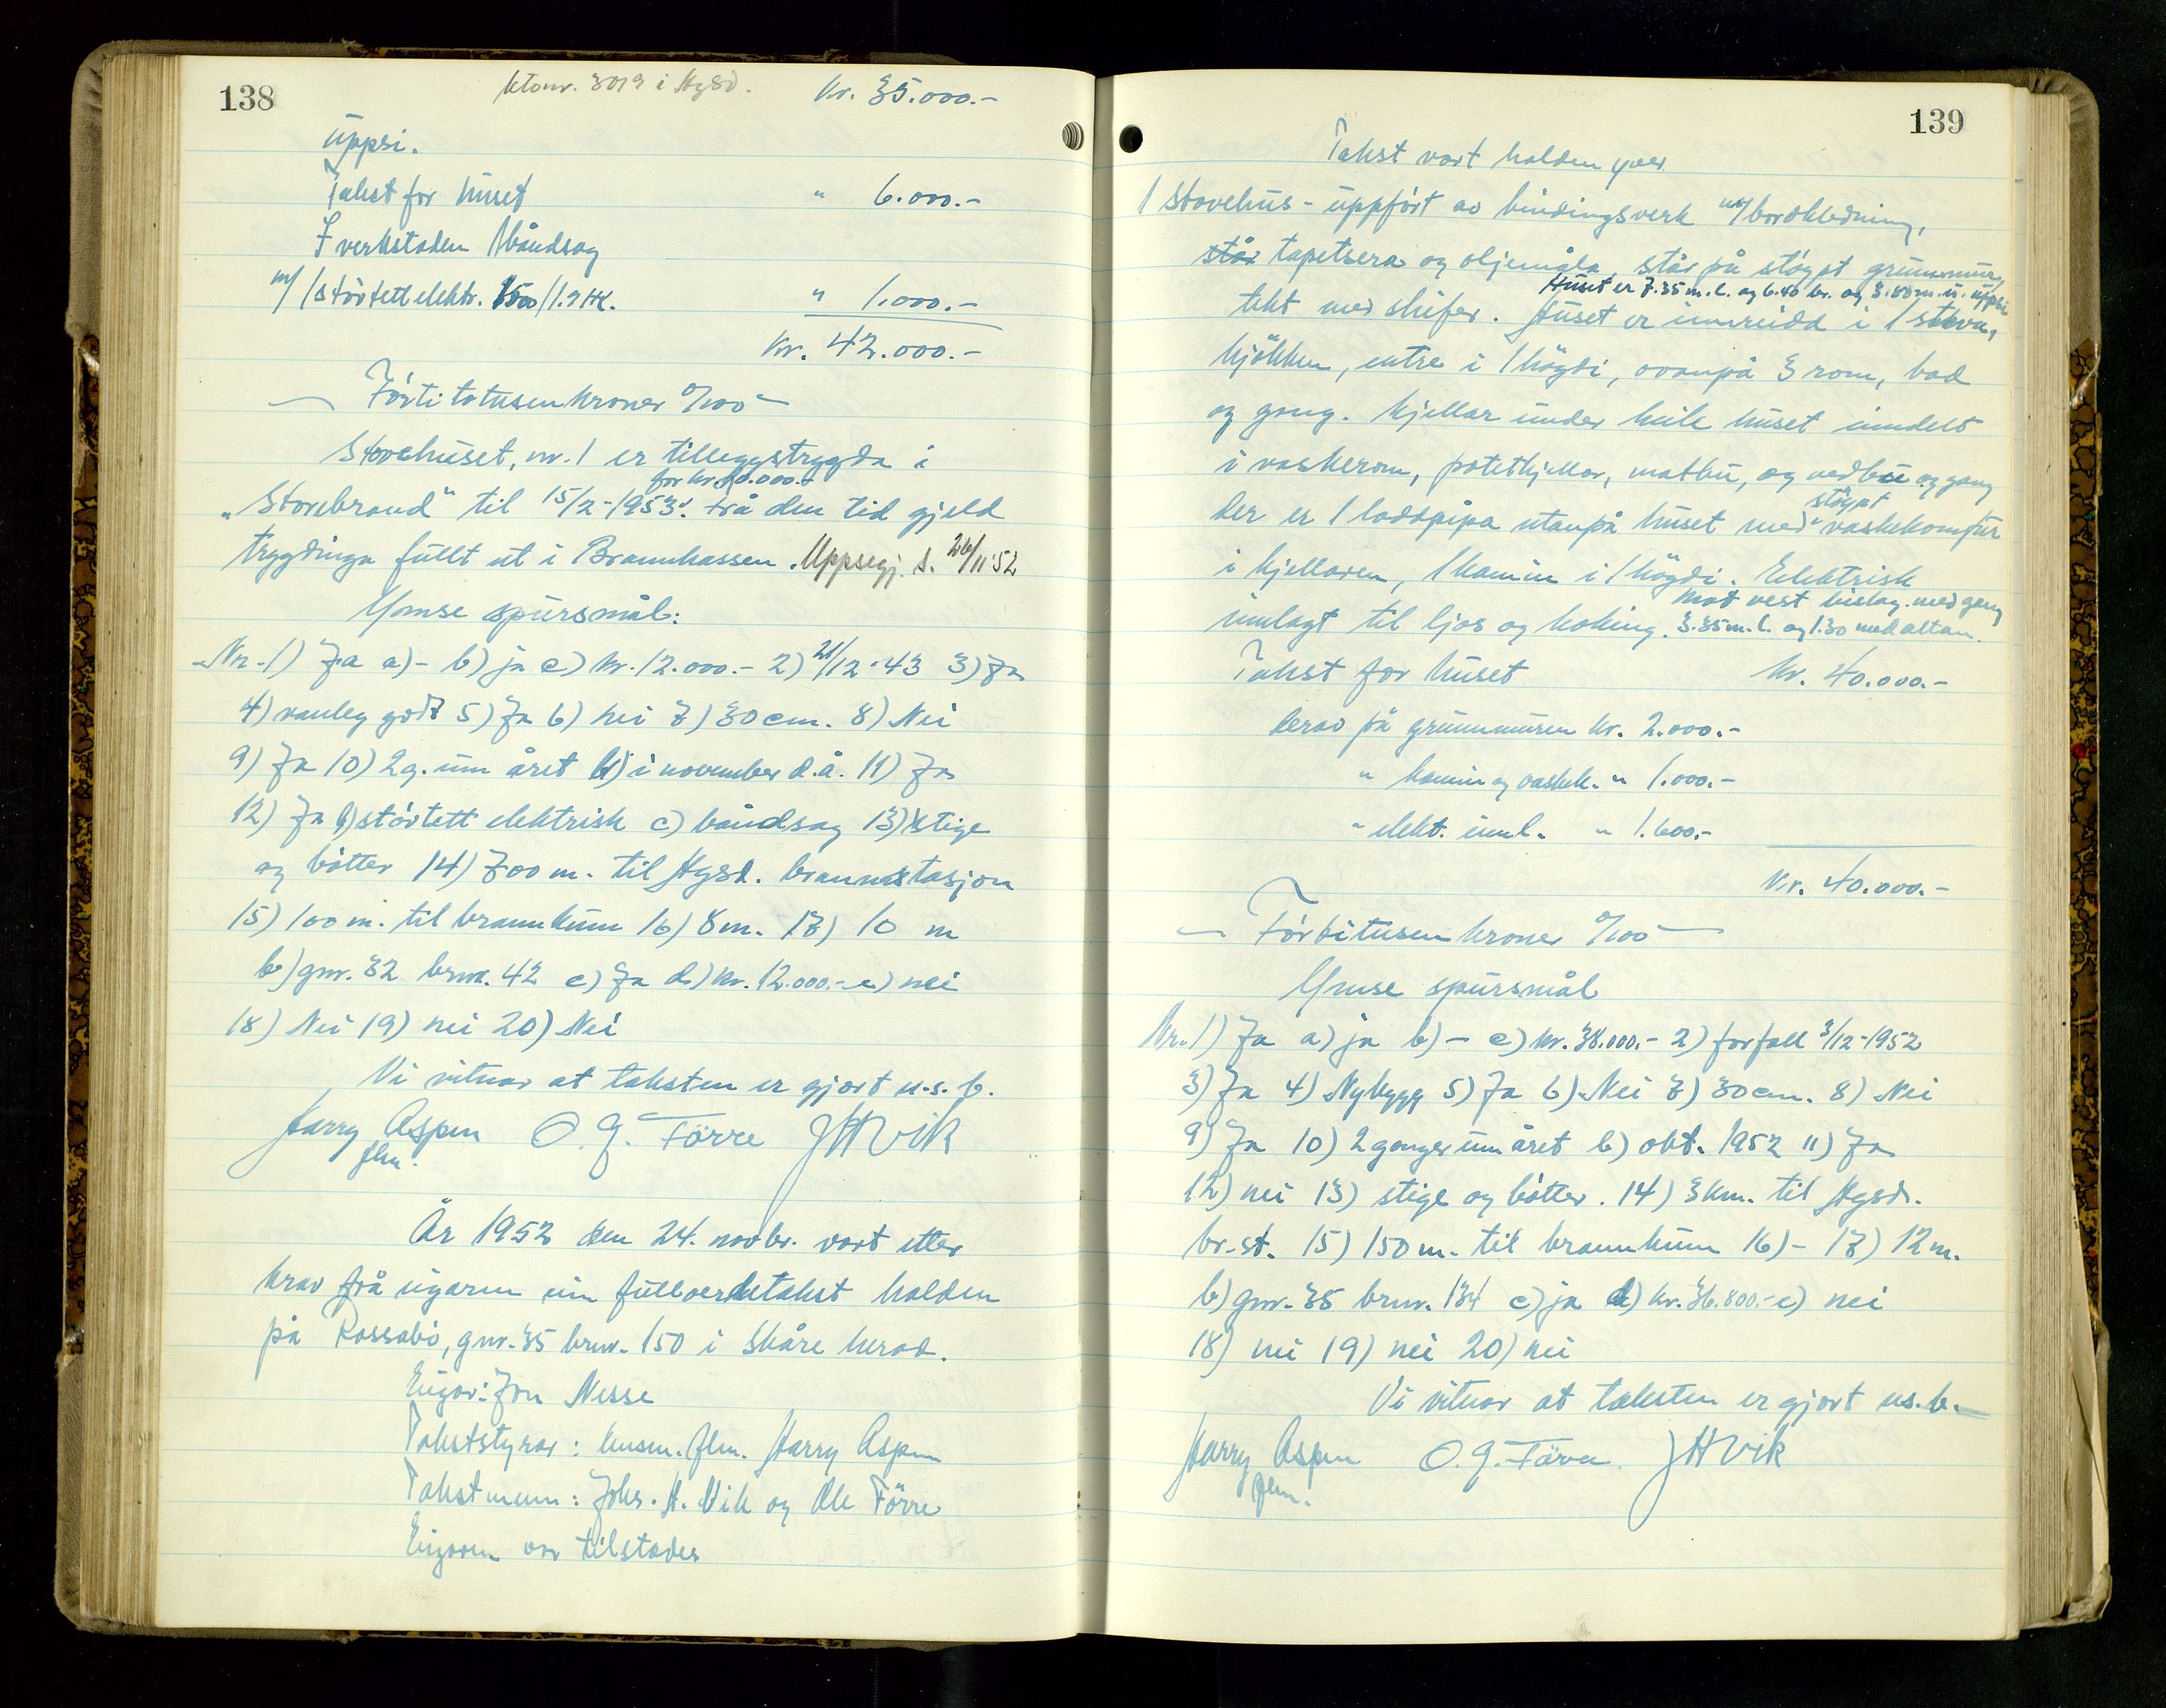 138
ktonr. 3019 i Hgsd. kr. 35.000.-
uppsi.
Takst for huset " 6.000.-
I verkstaden 1 båndsag
m/ 1 støvtett elektr. 1500/1.9 HK. " 1.000.-
kr. 42.000.-
Førtitotusen kroner 0/100
Stovehuset, nr. 1 er tilleggstrygda i
for kr. 10.000.-
"Storebrand" til 15/2-1953. Frå den tid gjeld
trygdinga fullt ut i Brannkassen. Uppsegj. s. 26/11 52
Ymse spursmål:
Nr. 1) Ja a) - b) ja c) kr. 12.000.- 2) 21/12-43 3) Ja
4) vanleg godt 5) Ja 6) nei 7) 30 cm. 8) Nei
9) Ja 10) 2 g. um året b) i november d.å. 11) Ja
12) Ja b) støvtett elektrisk c) båndsag 13) stige
og bøtter 14) 700 m. til Hgsd. brannstasjon
15) 100 m. til brannkum 16) 8 m. 17) 10 m
b) gnr. 32 brnr. 42 c) Ja d) kr. 12.000.- e) nei
18) Nei 19) nei 20) Nei
Vi vitnar at taksten er gjort u.s.b.
Harry Aspen O. G. Førre J H Vik
flm.
År 1952 den 24. novbr. vart etter
krav frå eigaren ein fullverdetakst halden
på Rossabø, gnr. 35 brnr. 150 i Skåre herad.
Eigar: Jon Nesse
Takststyrar: lensm. flm. Harry Aspen
Takstmenn: Johs. H. Vik og Ole Førre
Eigaren var tilstades
139
Takst vart halden yver
1 stovehus - uppført av bindingsverk m/bordkledning,
står tapetsera og oljemåla, står på støypt grunnmur,
Huset er 7.35 m. l. og 6.40 br. og 3.80 m. u. uppsi
tekt med skifer. Huset er innreidd i 1 stova,
kjøkken, entre i 1 høgdi, ovanpå 3 rom, bad
og gang. Kjellar under heile huset inndelt
i vaskerom, potetkjellar, matbu, og vedbu og gang
støypt
Der er 1 loddpipa utanpå huset med vaskekomfur
i kjellaren, 1 kamin i 1 høgdi. Elektrisk
Mot vest bislag med gang
innlagt til ljos og koking. 3.35 m. l. og 1.30 med altan.
Takst for huset kr. 40.000.-
Derav på grunnmuren kr. 2.000.-
" kamin og vaskek. " 1.000.-
" elekt. innl. " 1.600.-
kr. 40.000.-
Førtitusen kroner 0/100
Ymse spursmål
Nr. 1) Ja a) ja b) - c) kr. 38.000.- 2) forfall 3/12-1952
3) Ja 4) Nybygg 5) Ja 6) Nei 7) 30 cm. 8) Nei
9) Ja 10) 2 gonger um året b) okt. 1952 11) Ja
12) nei 13) stige og bøtter. 14) 3 km. til Hgsd.
br.st. 15) 150 m. til brannkum 16) - 17) 12 m.
b) gnr. 35 brnr. 134 c) ja d) kr. 36.800.- e) nei
18) nei 19) nei 20) nei
Vi vitnar at taksten er gjort u.s.b.
Harry Aspen O. G. Førre J H Vik
flm.